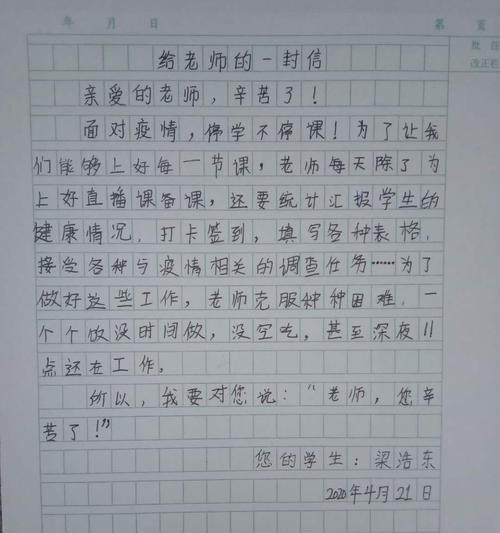 年 月 日 第 页
批 改正栏
给老师的一封信
亲爱的老师,辛苦了!
面对疫情,停学不停课!为了让我
们能够上好每一节课,老师每天除了为
上好直播课备课,还要统计汇报学生的
健康情况,打卡签到,填写各种表格,
接受各种与疫情相关的调查任务……为了
做好这些工作,老师克服种种困难,一
个个饭没时间做,没空吃,甚至深夜11
点还在工作。
所以,我要对您说:“老师,您辛
苦了!”
您的学生:梁浩东
2020年4月21日